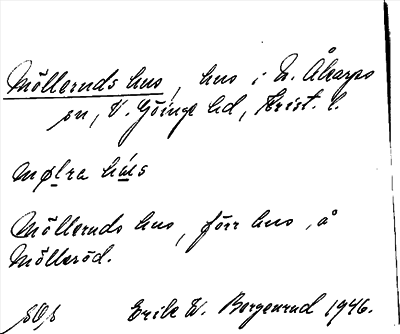 Mölleruds hus, hus i N. Åkarps
sn, V. Göinge hd, Krist. l.
møl̲ra hú̲s
Mölleruds hus, förr hus, å
Mölleröd.
Erik W. Bergenrud 1946.